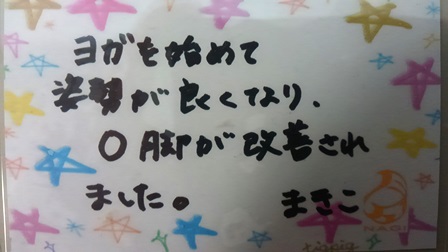 ヨガを始めて
姿勢が良くなり、
O脚が改善され
ました。 まさこ
NAGI